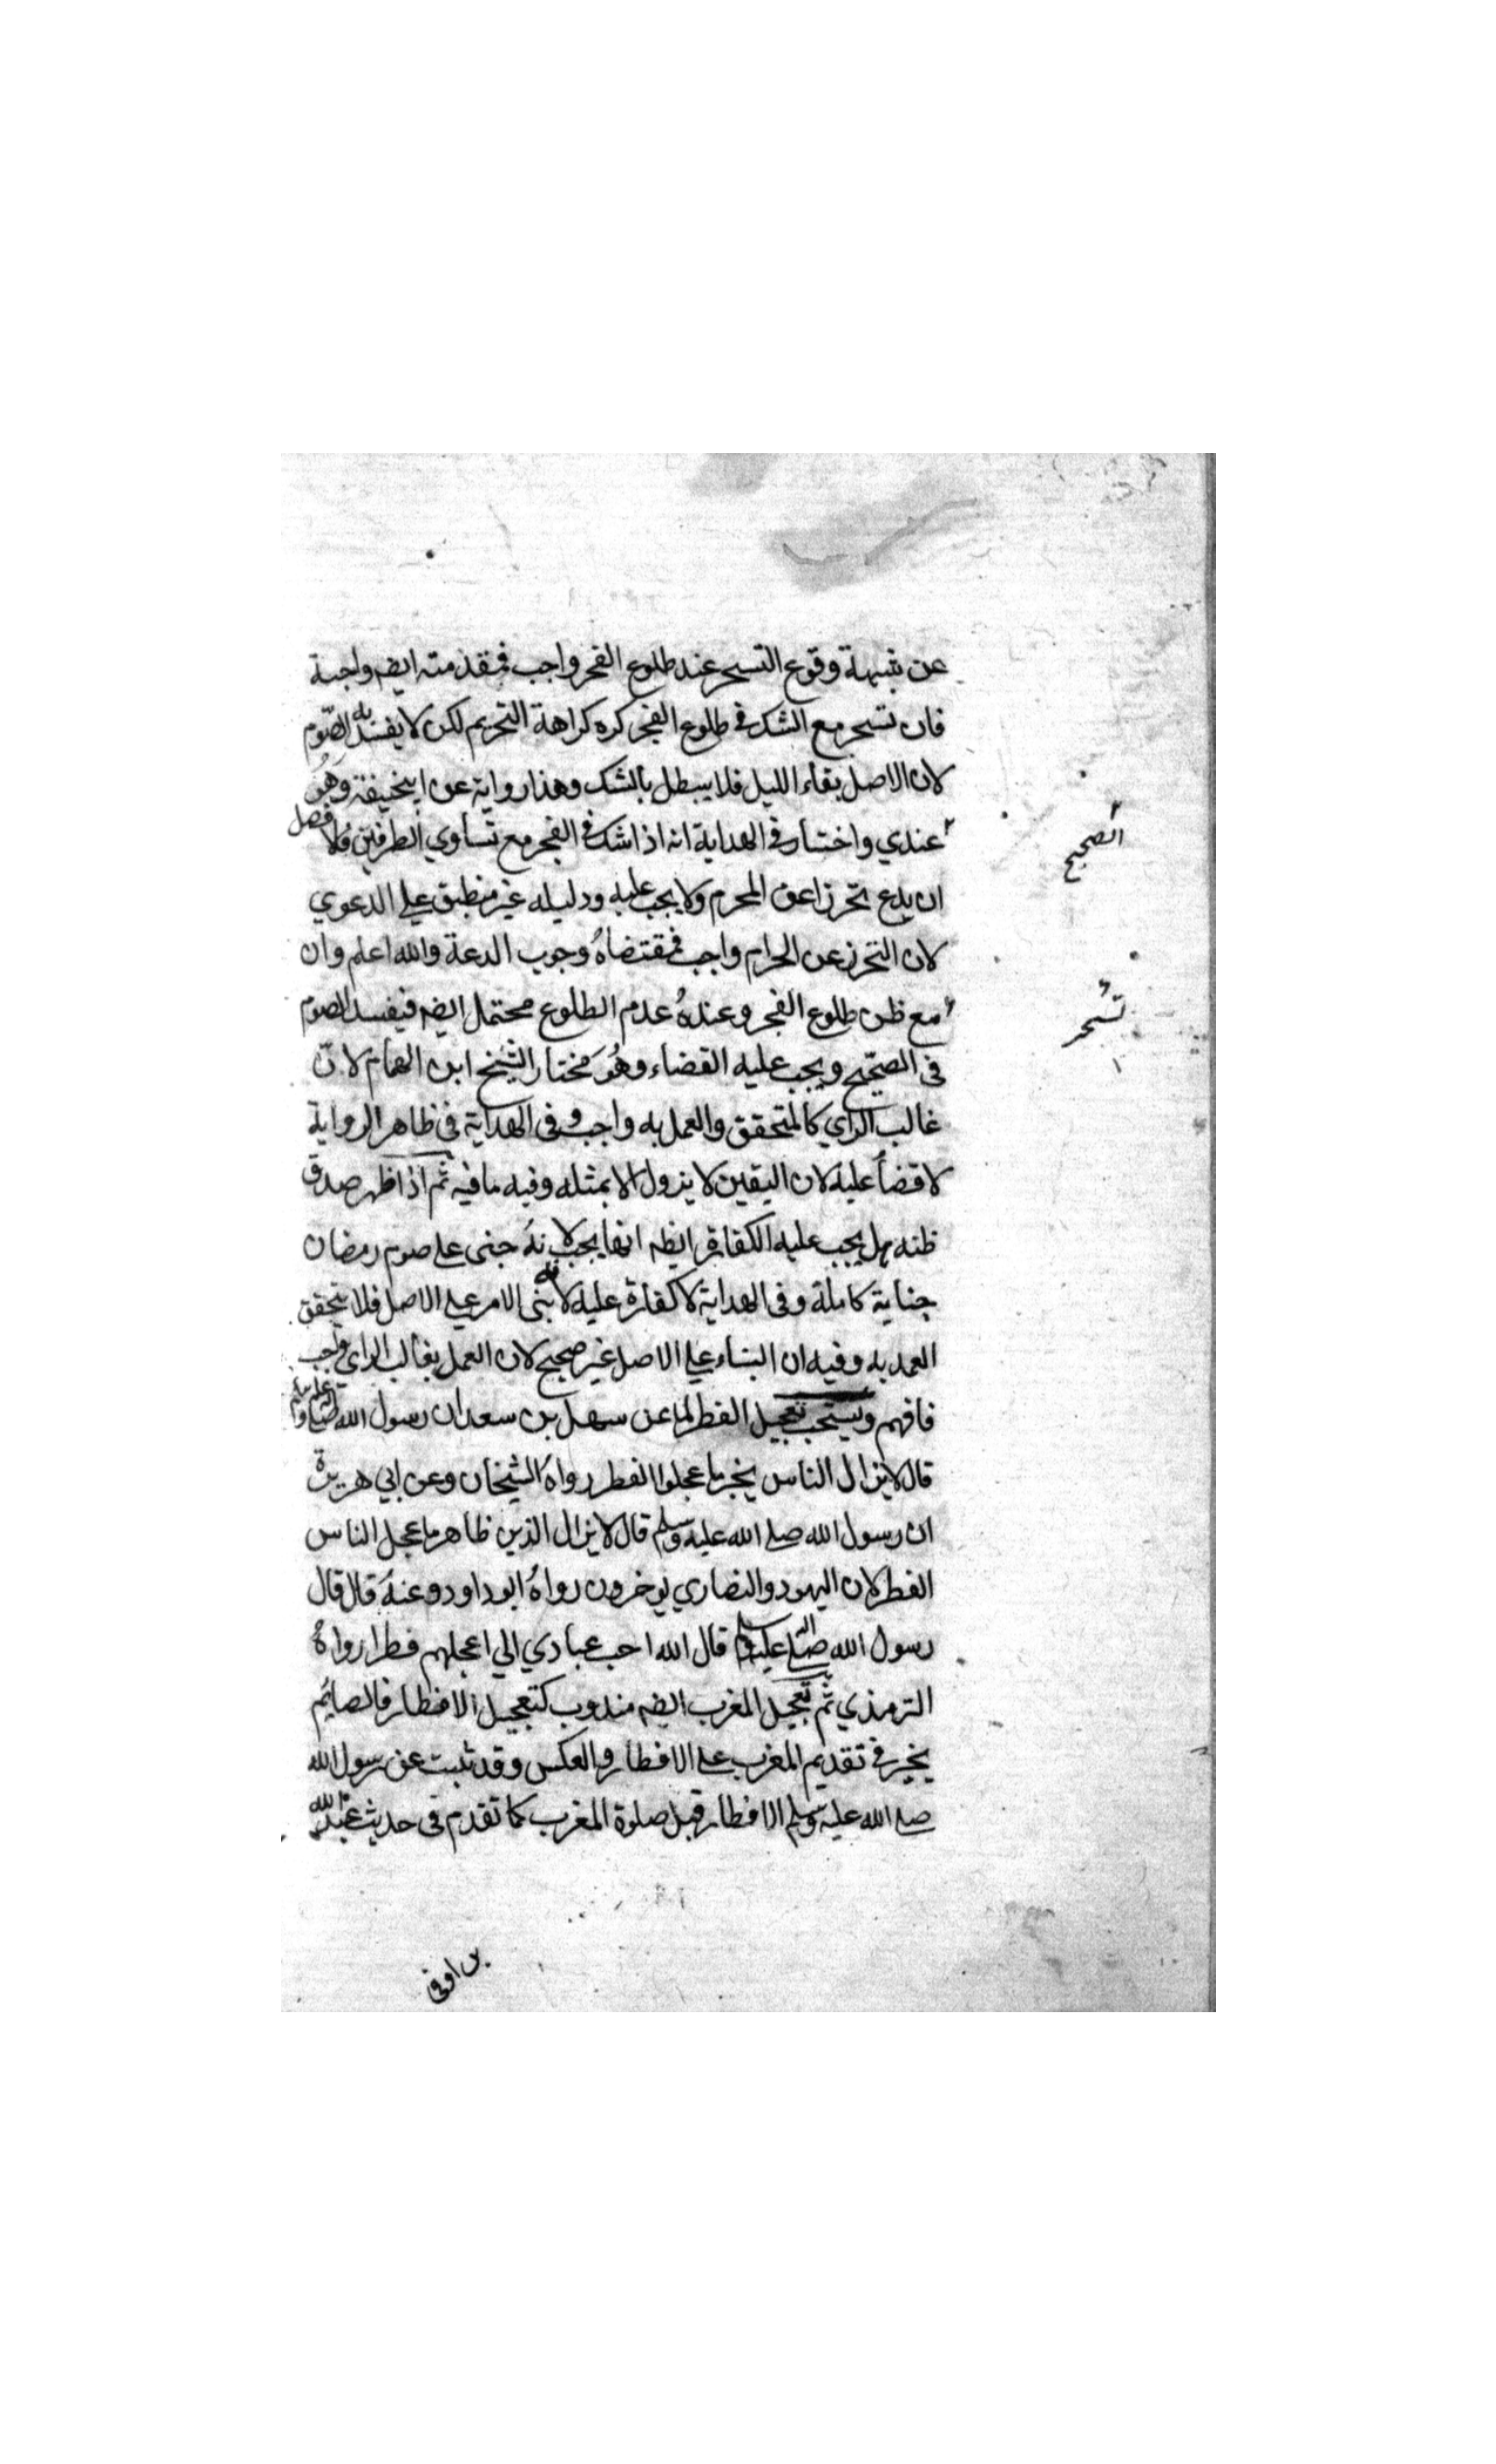 عن شبهة وقوع التسحر عند طلوع الفجر واجب فمقدمته ايضه واجبة
فان تسحر مع الشك في طلوع الفجر كره كراهة التحريم لكن لا يفسد به الصّوم
لان الاصل بقاء الليل فلا يبطل بالشك وهذا رواية عن ابيحنيفة وهُوَ
الصحيح
عندي واختار في الهداية انه اذا شك في الفجر مع تساوي الطرفين فالافضل
ان يدع تحرزا عن المحرم ولا يجب عليه ودليله غير منطبق علي الدعوي
لان التحرز عن الحرام واجب فمقتضاهُ وجوب الدعة والله اعلم وان
تسحر
مع ظن طلوع الفجر وعندهُ عدم الطلوع محتمل ايضه فيفسد الصوم
في الصّحيح ويجب عليه القضاء وهُوَ مختار الشيخ ابن الهمام لانّ
غالب الراي كالمتحقق والعمل به واجب وفى الهداية في ظاهر الرواية
لا قضأ عليه لان اليقين لا يزول الا بمثله وفيه ما فيه ثم اذا ظهر صدق
ظنه هل يجب عليه الكفارة ايضه انها يجب لانهُ جنى على صوم رمضان
جناية كاملة وفى الهداية لا كفارة عليه لانه بنى الامر علي الاصل فلا يتحقق
العمد به وفيه ان البناء علي الاصل غير صحيح لان العمل بغالب الراى واجب
فافهم ويستحب تعجيل الفطر لما عن سهل بن سعد ان رسول الله صلى الله عليه وسلم
قال لا يزال الناس بخير ما عجلوا الفطر رواهُ الشيخان وعن ابي هريرة
ان رسول الله صلے الله عليه وسلم قال لا يزال الدين ظاهر ما عجل الناس
الفطر لان اليهود والنصاري يوخرون رواهُ ابو داود وعنهُ قال قال
رسول الله صلى الله عليه وسلم قال الله احب عبادي الي اعجلهم فطرا رواهُ
الترمذي ثم تعجيل المغرب ايضه مندوب كتعجيل الافطار فالصائم
يخير في تقديم المغرب علے الافطار والعكس وقد ثبت عن رسول الله
صلے الله عليه وسلم الافطار قبل صلوة المغرب كما تقدم في حديث عبد الله
بن اوفى